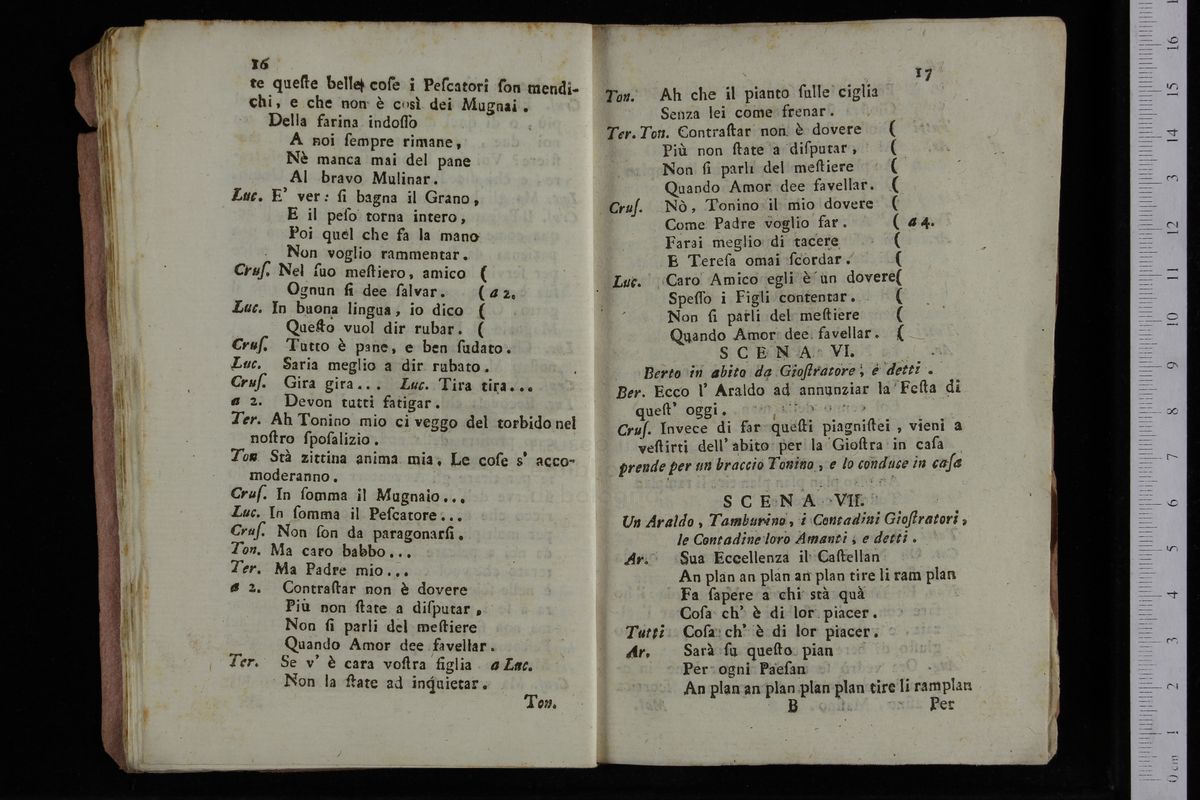 16
te queſte belle coſe i Peſcatori ſon mendi-
chi, e che non è così dei Mugnai.
Della farina indoſſo
A noi ſempre rimane,
Nè manca mai del pane
Al bravo Mulinar.
Luc. E' ver: ſi bagna il Grano,
E il peſo torna intero,
Poi quel che fa la mano
Non voglio rammentar.
Cruſ. Nel ſuo meſtiero, amico (
Ognun ſi dee ſalvar. ( a 2.
Luc. In buona lingua, io dico (
Queſto vuol dir rubar. (
Cruſ. Tutto è pane, e ben ſudato.
Luc. Saria meglio a dir rubato.
Cruſ. Gira gira... Luc. Tira tira...
a 2. Devon tutti fatigar.
Ter. Ah Tonino mio ci veggo del torbido nel
noſtro ſpoſalizio.
Ton Stà zittina anima mia. Le coſe s' acco-
moderanno.
Cruſ. In ſomma il Mugnaio...
Luc. In ſomma il Peſcatore...
Cruſ. Non ſon da paragonarſi.
Ton. Ma caro babbo...
Ter. Ma Padre mio...
a 2. Contraſtar non è dovere
Più non ſtate a diſputar,
Non ſi parli del meſtiere
Quando Amor dee favellar.
Ter. Se v' è cara voſtra figlia a Luc.
Non la ſtate ad inquietar.
Ton.
17
Ton. Ah che il pianto ſulle ciglia
Senza lei come frenar.
Ter. Ton. Contraſtar non è dovere (
Più non ſtate a diſputar, (
Non ſi parli del meſtiere (
Quando Amor dee favellar. (
Cruſ. Nò, Tonino il mio dovere (
Come Padre voglio far. ( a 4.
Farai meglio di tacere (
E Tereſa omai ſcordar. (
Luc. Caro Amico egli è un dovere(
Speſſo i Figli contentar. (
Non ſi parli del meſtiere (
Quando Amor dee favellar. (
SCENA VI.
Berto in abito da Gioſtratore, e detti.
Ber. Ecco l' Araldo ad annunziar la Feſta di
queſt' oggi.
Cruſ. Invece di far queſti piagniſtei, vieni a
veſtirti dell' abito per la Gioſtra in caſa
prende per un braccio Tonino, e lo conduce in caſa
SCENA VII.
Un Araldo, Tamburino, i Contadini Gioſtratori,
le Contadine loro Amanti, e detti.
Ar. Sua Eccellenza il Caſtellan
An plan an plan an plan tire li ram plan
Fa ſapere a chi stà quà
Coſa ch' è di lor piacer.
Tutti Coſa ch' è di lor piacer.
Ar. Sarà ſu queſto pian
Per ogni Paeſan
An plan an plan plan plan tire li ramplan
B Per